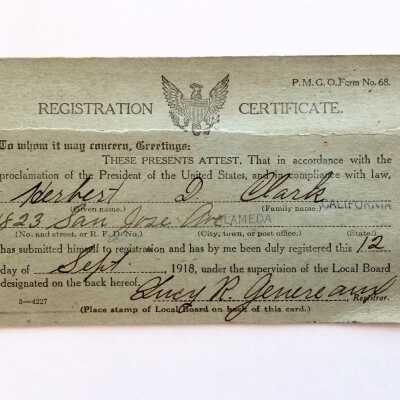 P.M.G.O. Form No. 68.
REGISTRATION CERTIFICATE.
To whom it may concern, Greetings:
THESE PRESENTS ATTEST, That in accordance with the
proclamation of the President of the United States, and in compliance with law,
Herbert D. Clark
(Given name.) (Family name.) CALIFORNIA
1823 San Jose Ave ALAMEDA
(No. and street, or R. F. D. No.) (City, town, or post office.) (State.)
has submitted himself to registration and has by me been duly registered this 12
day of Sept, 1918, under the supervision of the Local Board
designated on the back hereof. Lucy R. Genereaux
3—4227 Registrar.
(Place stamp of Local Board on back of this card.)